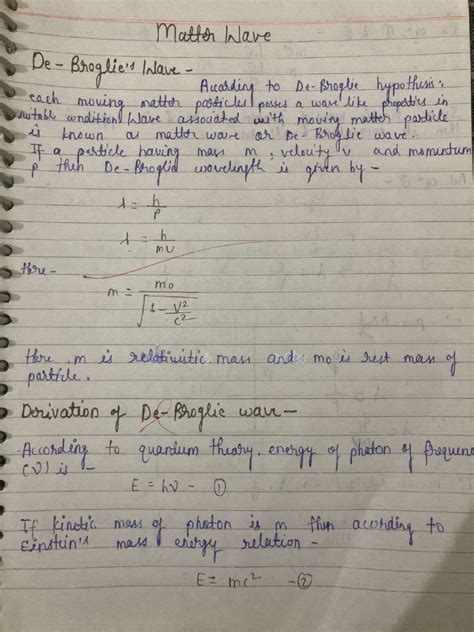 Matter Wave
De-Broglie's Wave -
According to De-Broglie hypothesis,
each moving matter particles posses a wave like properties in
suitable condition Wave associated with moving matter particle
is known as matter wave or De-Broglie wave.
If a particle having mass m, velocity v and momentum
p then De-Broglie wavelength is given by -
λ = h/p
λ = h/mv
Here -
m = m₀/√(1 - v²/c²)
Here m is relativistic mass and m₀ is rest mass of
particle.
Derivation of De-Broglie wave -
According to quantum theory, energy of photon of frequenc
(ν) is -
E = hν - ①
If kinetic mass of photon is m then according to
Einstein's mass energy relation -
E = mc² - ②